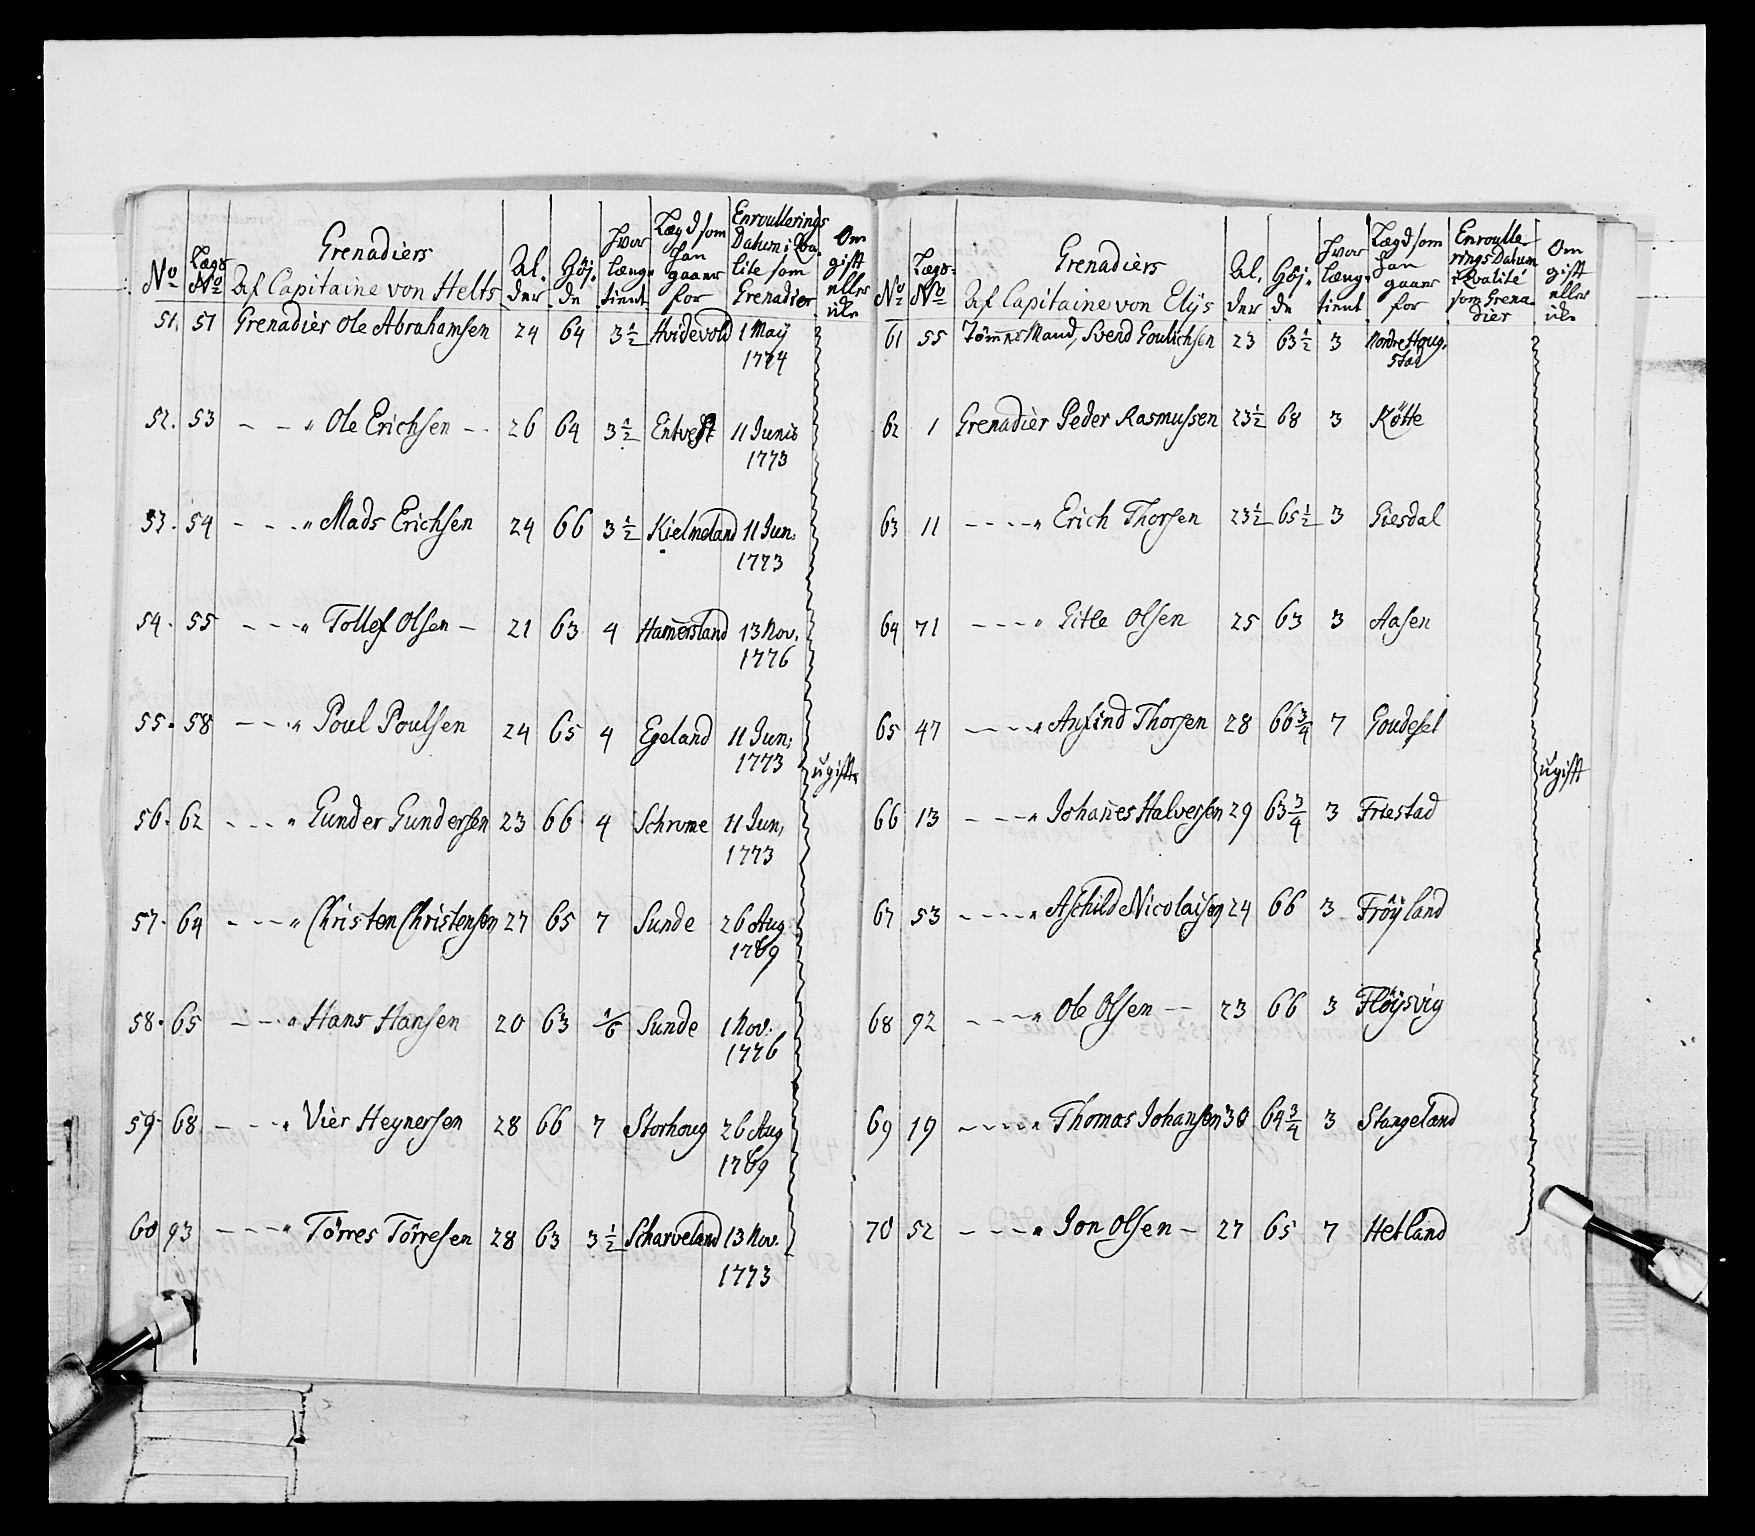 No | Lægs No | Grenadiers Af Capitaine von Helts | Al. der | Höj. de | Hvor længe tient | Lægd som han gaaer for | Enroullerings Datum i Qva lite som Grenadier | Om gifft eller ikke
51. | 51 | Grenadier Ole Abrahamsen | 24 | 64 | 3½ | Hvidevold | 1 Maÿ 1774
52. | 53 | – – " Ole Erichsen – – | 26 | 64 | 3½ | Entvest | 11 Junii 1773
53. | 54 | – – – " Mads Erichsen | 24 | 66 | 3½ | Kielmeland | 11 Jun: 1773
54. | 55 | – – – " Tollef Olsen – | 21 | 63 | 4 | Ham̄ersland | 13 Nov. 1776
55. | 58 | – – – " Poul Poulsen | 24 | 65 | 4 | Egeland | 11 Jun: 1773
ugifft
56. | 62 | – – – " Gunder Gundersen | 23 | 66 | 4 | Schrume | 11 Jun; 1773
57. | 64 | – – – " Christen Christensen | 27 | 65 | 7 | Sunde | 26 Aug 1769
58. | 65 | – – – " Hans Hansen | 20 | 63 | 1/6 | Sunde | 1 Nov. 1776
59. | 68 | – – – " Vier Heynersen | 28 | 66 | 7 | Storhoug | 26 Aug 1769
60 | 93 | – – – " Törres Törresen | 28 | 63 | 3½ | Scharveland | 13 Nov. 1773
No | Lægs- No | Grenadiers Af Capitaine von Elÿs | Al. der | Höj. de | Hvor længe tient | Lægd som han gaaer for | Enroulle rings Datum i Qvalité som Grena dier | Om gifft eller ikke
61 | 55 | Töm̄er Mand, Svend Goulichsen | 23 | 63½ | 3 | Nordre Houg. stad
62 | 1 | Grenadier Peder Rasmussen | 23½ | 68 | 3 | Kötte
63 | 11 | – – – – " Erich Thorsen | 23½ | 65½ | 3 | Giesdal
64 | 71 | – – – – " Gitle Olsen | 25 | 63 | 3 | Aasen
65 | 47 | – – – – " Anfind Thorsen | 28 | 66¾ | 7 | Goudesel
ugifft
66 | 13 | – – – – " Johan̄es Halversen | 29 | 63¾ | 3 | Friestad
67 | 53 | – – – – " Aschild Nicolaisen | 24 | 66 | 3 | Fröÿland
68 | 92 | – – – – " Ole Olsen – – | 23 | 66 | 3 | Flöÿsvig
69 | 19 | – – – – " Thomas Johansen | 30 | 64¾ | 3 | Stangeland
70 | 52 | – – – – " Jon Olsen – | 27 | 65 | 7 | Hetland